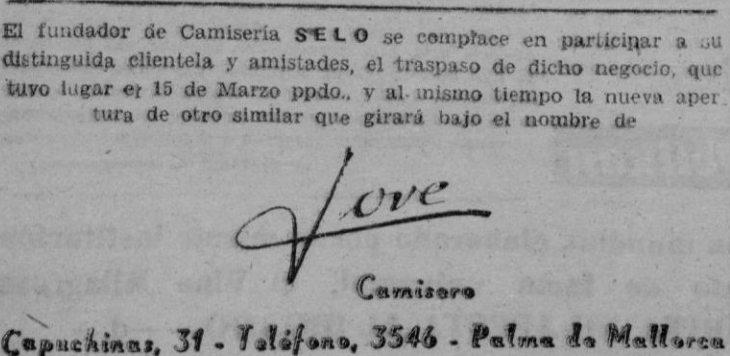 El fundador de Camisería SELO se complace en participar a su
distinguida clientela y amistades, el traspaso de dicho negocio, que
tuvo lugar el 15 de Marzo ppdo., y al mismo tiempo la nueva aper-
tura de otro similar que girará bajo el nombre de
Jove
Camisero
Capuchinas, 31 - Teléfono, 3546 - Palma de Mallorca